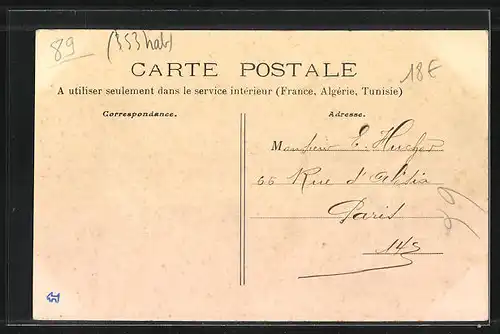 89 (353 hab)
CARTE POSTALE
18€
A utiliser seulement dans le service intérieur (France, Algérie, Tunisie)
Correspondance.
Adresse.
Monsieur E. Hucher
66 Rue d'Alésia
Paris
14e